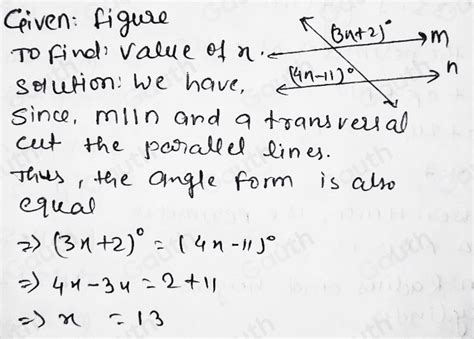 Given: figure
To find: value of x.
(3x+2)°
m
(4x-11)°
n
solution: we have,
Since, m||n and a transversal
cut the parallel lines.
Thus, the angle form is also
equal
=> (3x+2)° = (4x-11)°
=> 4x-3x = 2+11
=> x = 13